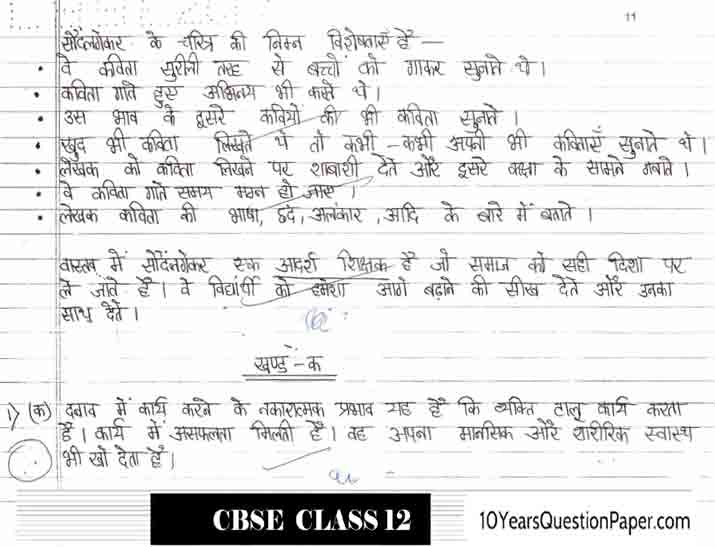 11
सौंदलगेकर के चरित्र की निम्न विशेषताएँ हैं —
• वे कविता सुरीली तरह से बच्चों को गाकर सुनाते थे।
• कविता गाते हुए अभिनय भी करते थे।
• उस भाव के दूसरे कवियों की भी कविता सुनाते।
• खुद भी कविता लिखते थे तो कभी-कभी अपनी भी कविताएँ सुनाते थे।
• लेखक को कविता लिखने पर शाबाशी देते और दूसरे कक्षा के सामने गवाते।
• वे कविता गाते समय मग्न हो जाए।
• लेखक कविता की भाषा, छंद, अलंकार, आदि के बारे में बताते।
वास्तव में सौंदलगेकर एक आदर्श शिक्षक है जो समाज को सही दिशा पर
ले जाते है। वे विद्यार्थी को हमेशा आगे बढ़ाने की सीख देते और उनका
साथ देते।
खण्ड-क
1) (क) दबाव में कार्य करने के नकारात्मक प्रभाव यह हैं कि व्यक्ति टालु कार्य करता
है। कार्य में असफलता मिलती है। वह अपना मानसिक और शारीरिक स्वास्थ
भी खो देता है।
CBSE CLASS 12
10YearsQuestionPaper.com